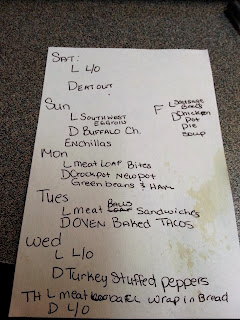 SAT:
L L/O
D EAT OUT
Sun
L SOUTHWEST
EGGROLLS
D BUFFALO Ch.
Enchillas
Mon
L meat LOAF Bites
D Crockpot New pot
Green beans & HAM
Tues
L meat BALLS Sandwiches
D OVEN BAKED TACOS
Wed
L L/O
D Turkey Stuffed peppers
TH L meat wrap in Bread
D L/O
F L SAUSAGE
D Chicken
Pot
Pie
Soup